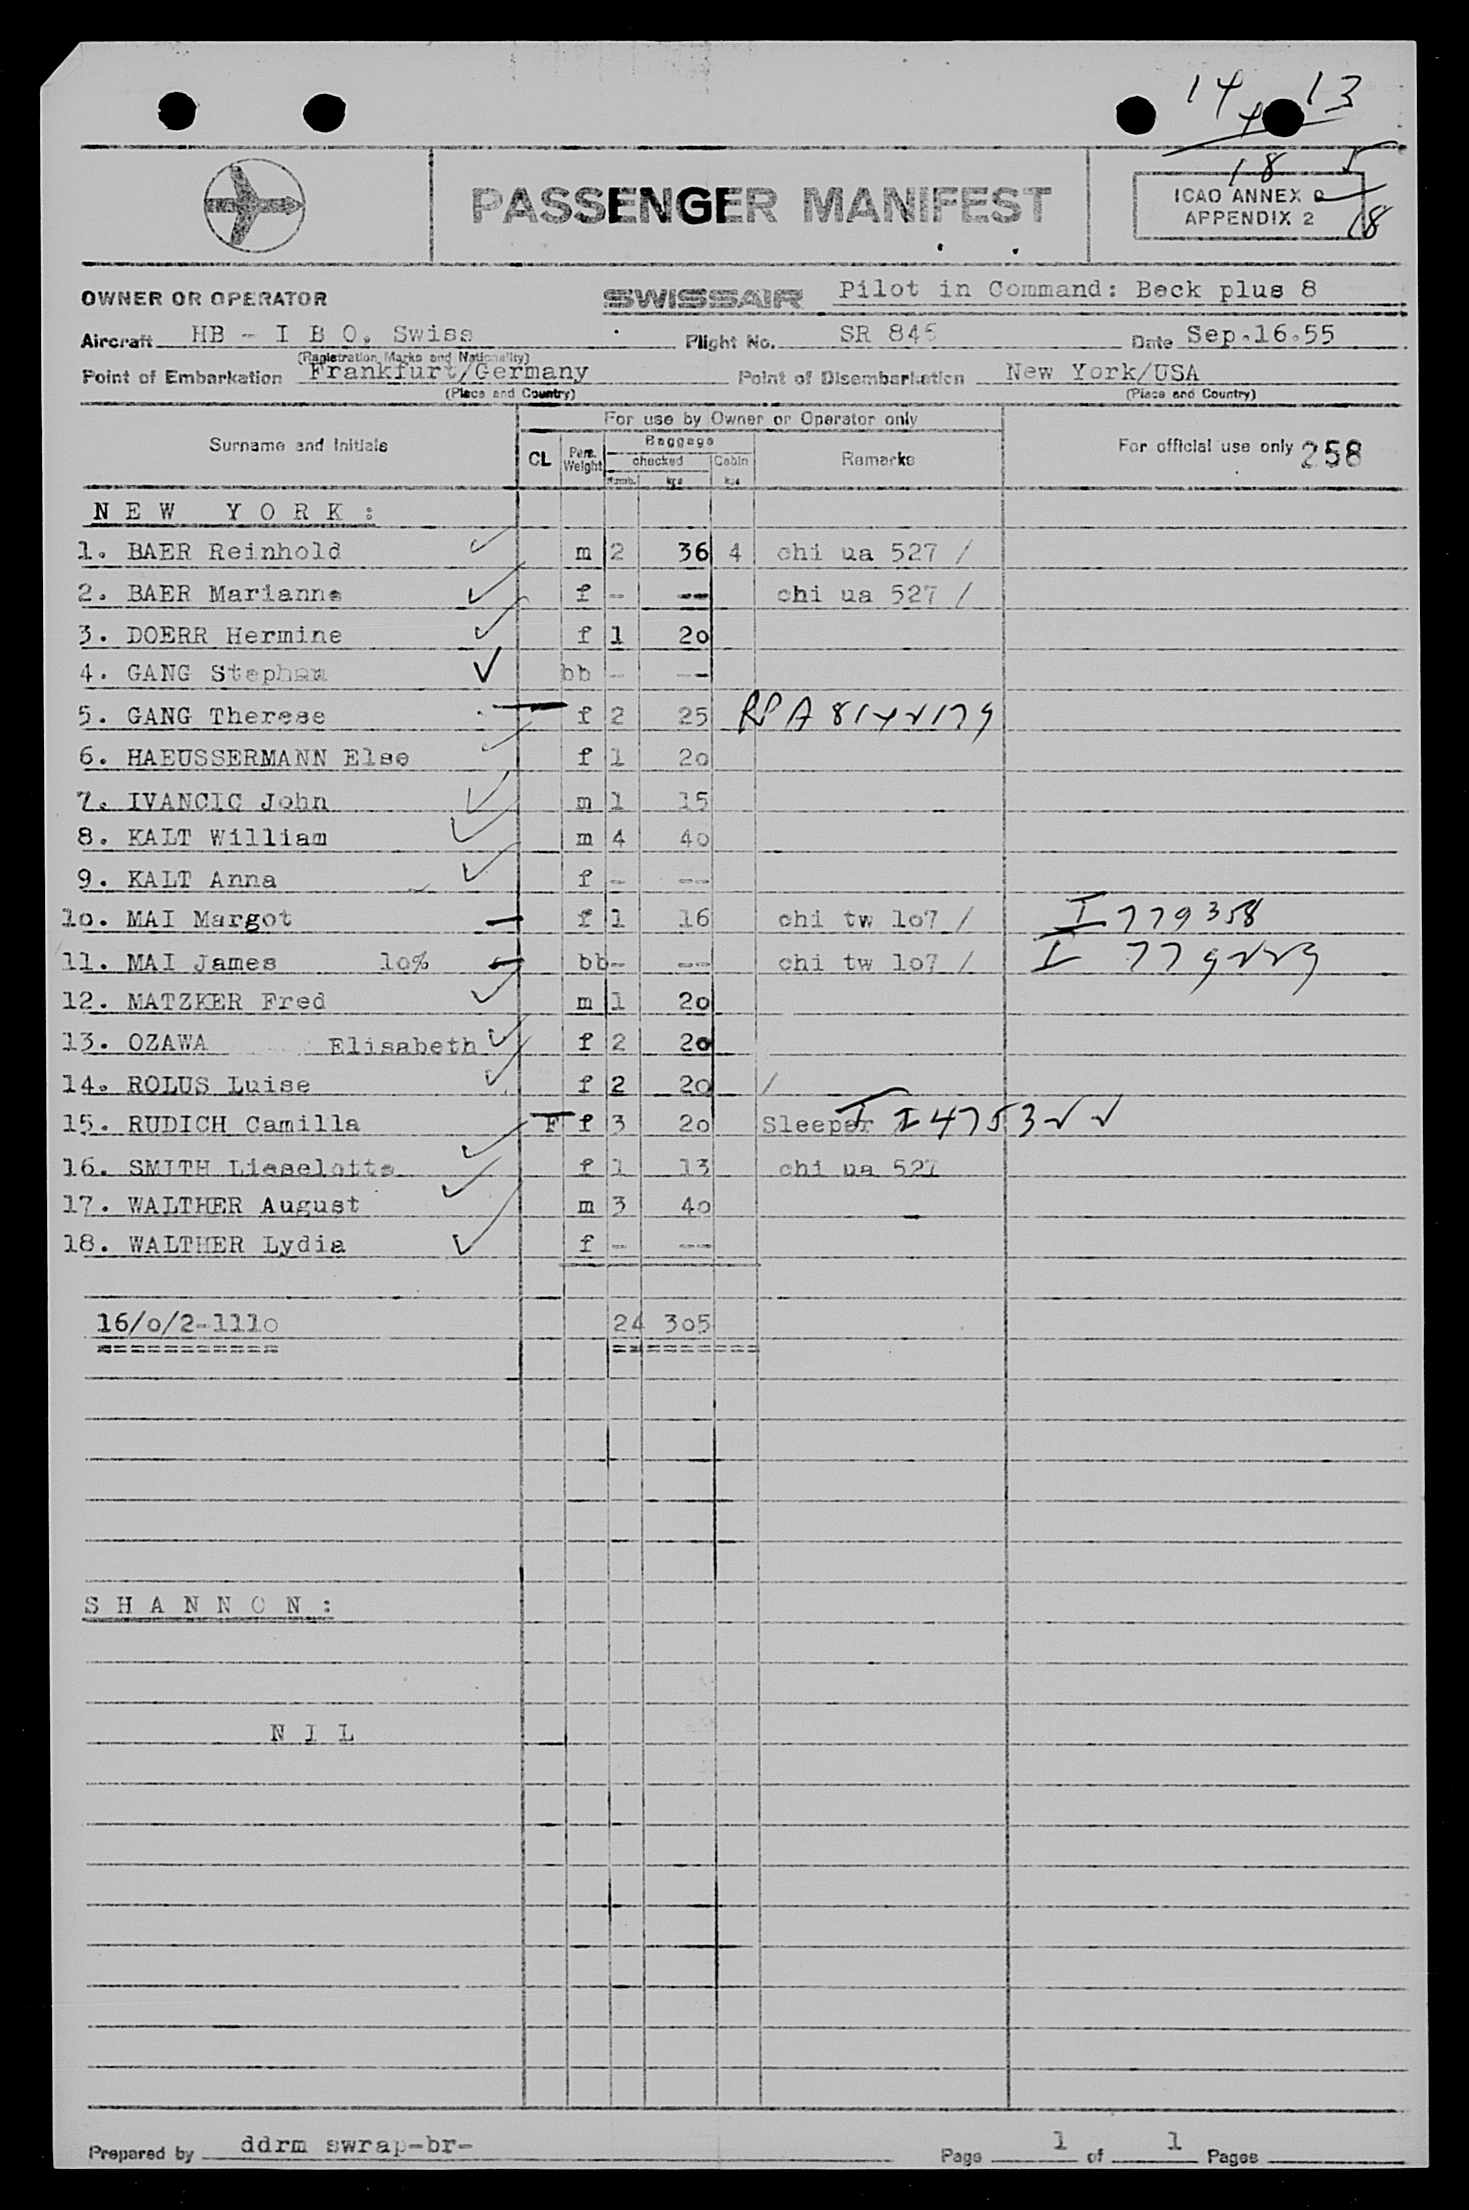 14 13
18 5
PASSENGER MANIFEST
ICAO ANNEX 9
APPENDIX 2
18
OWNER OR OPERATOR SWISSAIR Pilot in Command: Beck plus 8
Aircraft HB - I B O. Swiss Flight No. SR 846 Date Sep.16.55
(Registration Marks and Nationality)
Point of Embarkation Frankfurt/Germany Point of Disembarkation New York/USA
(Place and Country) (Place and Country)
For use by Owner or Operator only
Surname and Initials CL Pers. Weight Baggage Remarks For official use only 258
checked Cabin
Numb. kgs kgs
N E W Y O R K :
1. BAER Reinhold m 2 36 4 chi ua 527 /
2. BAER Marianne f - -- chi ua 527 /
3. DOERR Hermine f 1 20
4. GANG Stephan bb - --
5. GANG Therese f 2 25
6. HAEUSSERMANN Else f 1 20
7. IVANCIC John m 1 15
8. KALT William m 4 40
9. KALT Anna f - --
10. MAI Margot f 1 16 chi tw 107 / I 779358
11. MAI James 10% bb- -- chi tw 107 /
12. MATZKER Fred m 1 20
13. OZAWA Elisabeth f 2 20
14. ROLUS Luise f 2 20 /
15. RUDICH Camilla F f 3 20 Sleeper
16. SMITH Lieselotte f 1 13 chi ua 527
17. WALTHER August m 3 40
18. WALTHER Lydia f - --
16/0/2-1110 24 305
=========== =========
S H A N N O N :
N I L
Prepared by ddrm swrap-br- Page 1 of 1 Pages